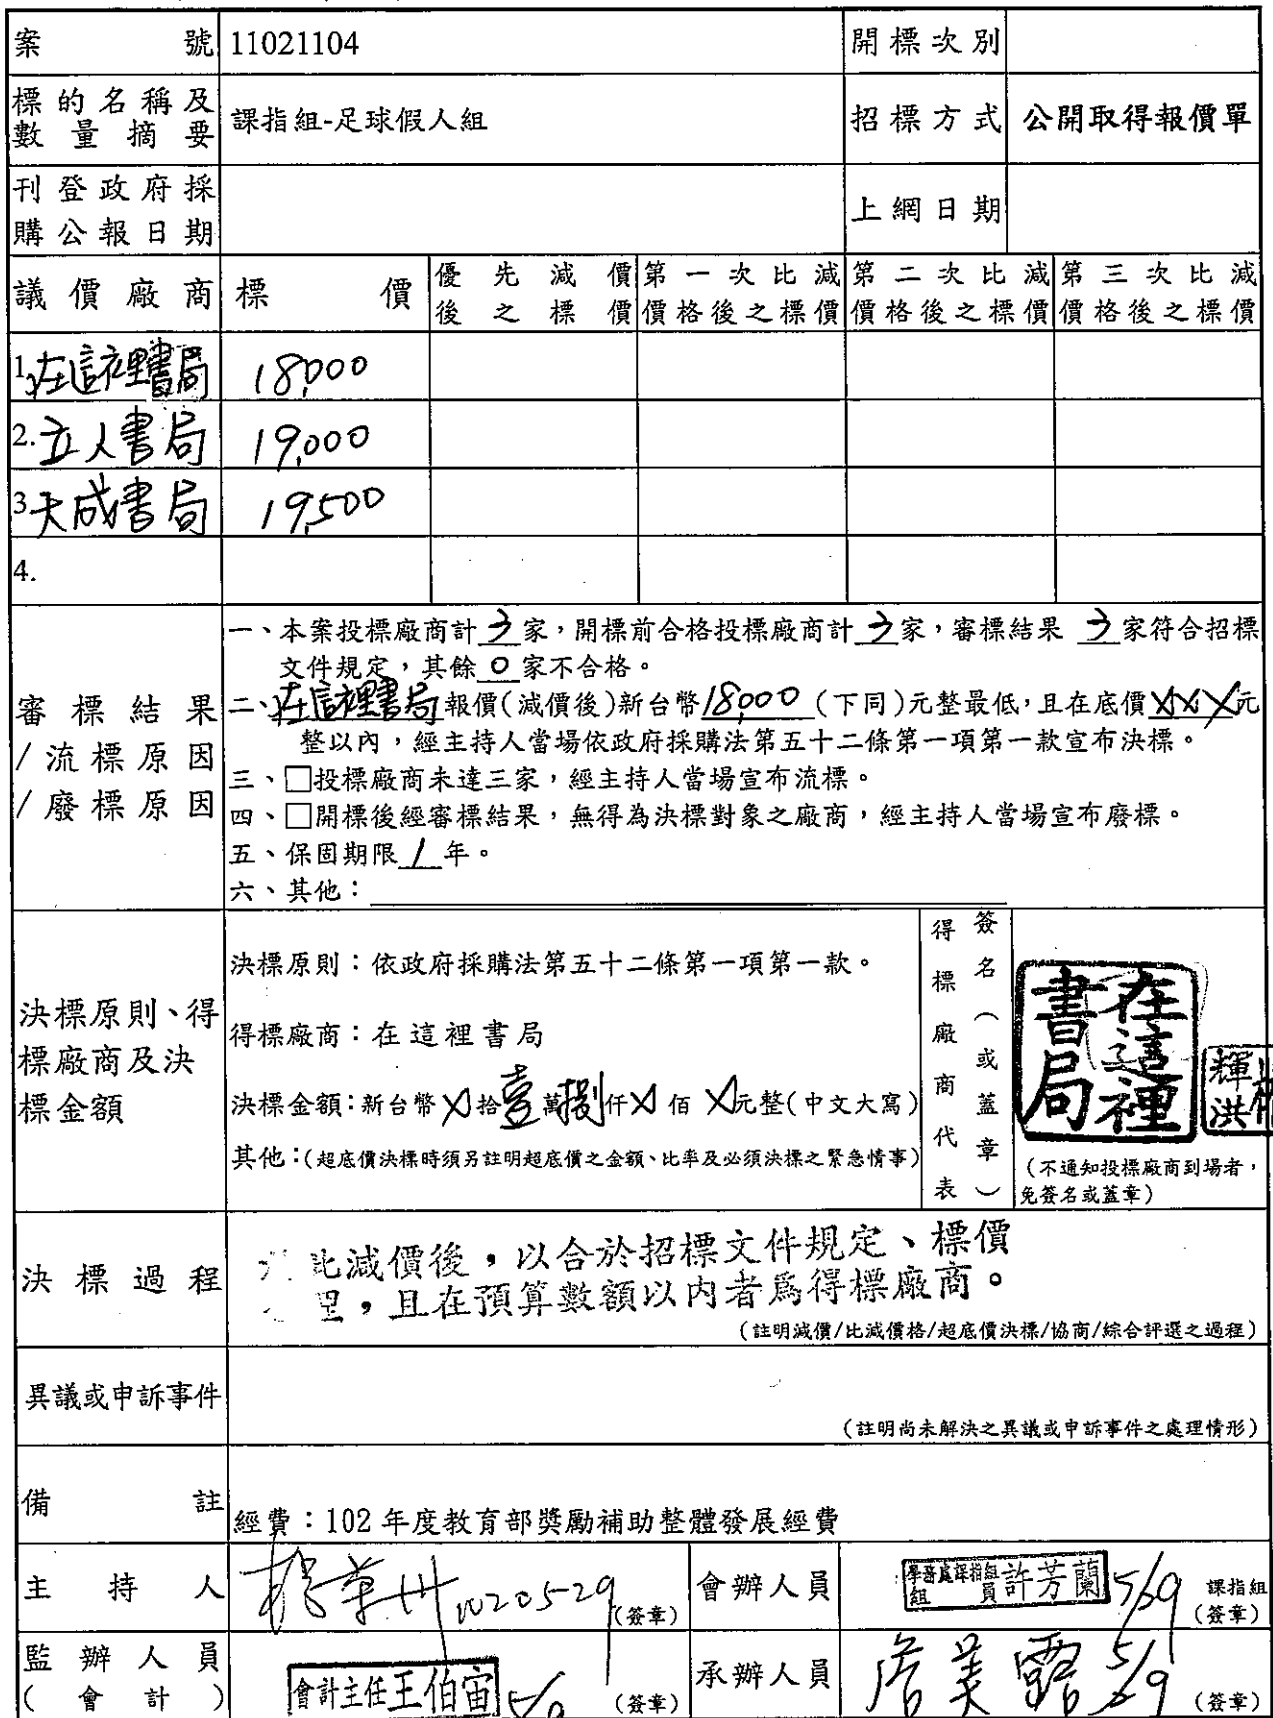 案號 11021104 開標次別
標的名稱及數量摘要 課指組-足球假人組 招標方式 公開取得報價單
刊登政府採購公報日期 上網日期
議價廠商 標價 優先減價後之標價 第一次比減價格後之標價 第二次比減價格後之標價 第三次比減價格後之標價
1.在這裡書局 18,000
2.立人書局 19,000
3.大成書局 19,500
4.
審標結果/流標原因/廢標原因
一、本案投標廠商計 3 家，開標前合格投標廠商計 3 家，審標結果 3 家符合招標
文件規定，其餘 0 家不合格。
二、在這裡書局報價(減價後)新台幣 18,000 (下同)元整最低，且在底價 XXX 元
整以內，經主持人當場依政府採購法第五十二條第一項第一款宣布決標。
三、□投標廠商未達三家，經主持人當場宣布流標。
四、□開標後經審標結果，無得為決標對象之廠商，經主持人當場宣布廢標。
五、保固期限 1 年。
六、其他：
決標原則、得標廠商及決標金額
決標原則：依政府採購法第五十二條第一項第一款。
得標廠商：在這裡書局
決標金額：新台幣X拾壹萬捌仟X佰X元整(中文大寫)
其他：(超底價決標時須另註明超底價之金額、比率及必須決標之緊急情事)
得標廠商代表簽名（或蓋章）
在這裡書局
輝洪
(不通知投標廠商到場者，
免簽名或蓋章)
決標過程
比減價後，以合於招標文件規定、標價
，且在預算數額以內者為得標廠商。
(註明減價/比減價格/超底價決標/協商/綜合評選之過程)
異議或申訴事件
(註明尚未解決之異議或申訴事件之處理情形)
備註 經費：102年度教育部獎勵補助整體發展經費
主持人 1020529 (簽章) 會辦人員 學務處課指組組員許芳蘭 5/29 課指組(簽章)
監辦人員(會計) 會計主任王伯宙 (簽章) 承辦人員 詹美露 5/29 (簽章)